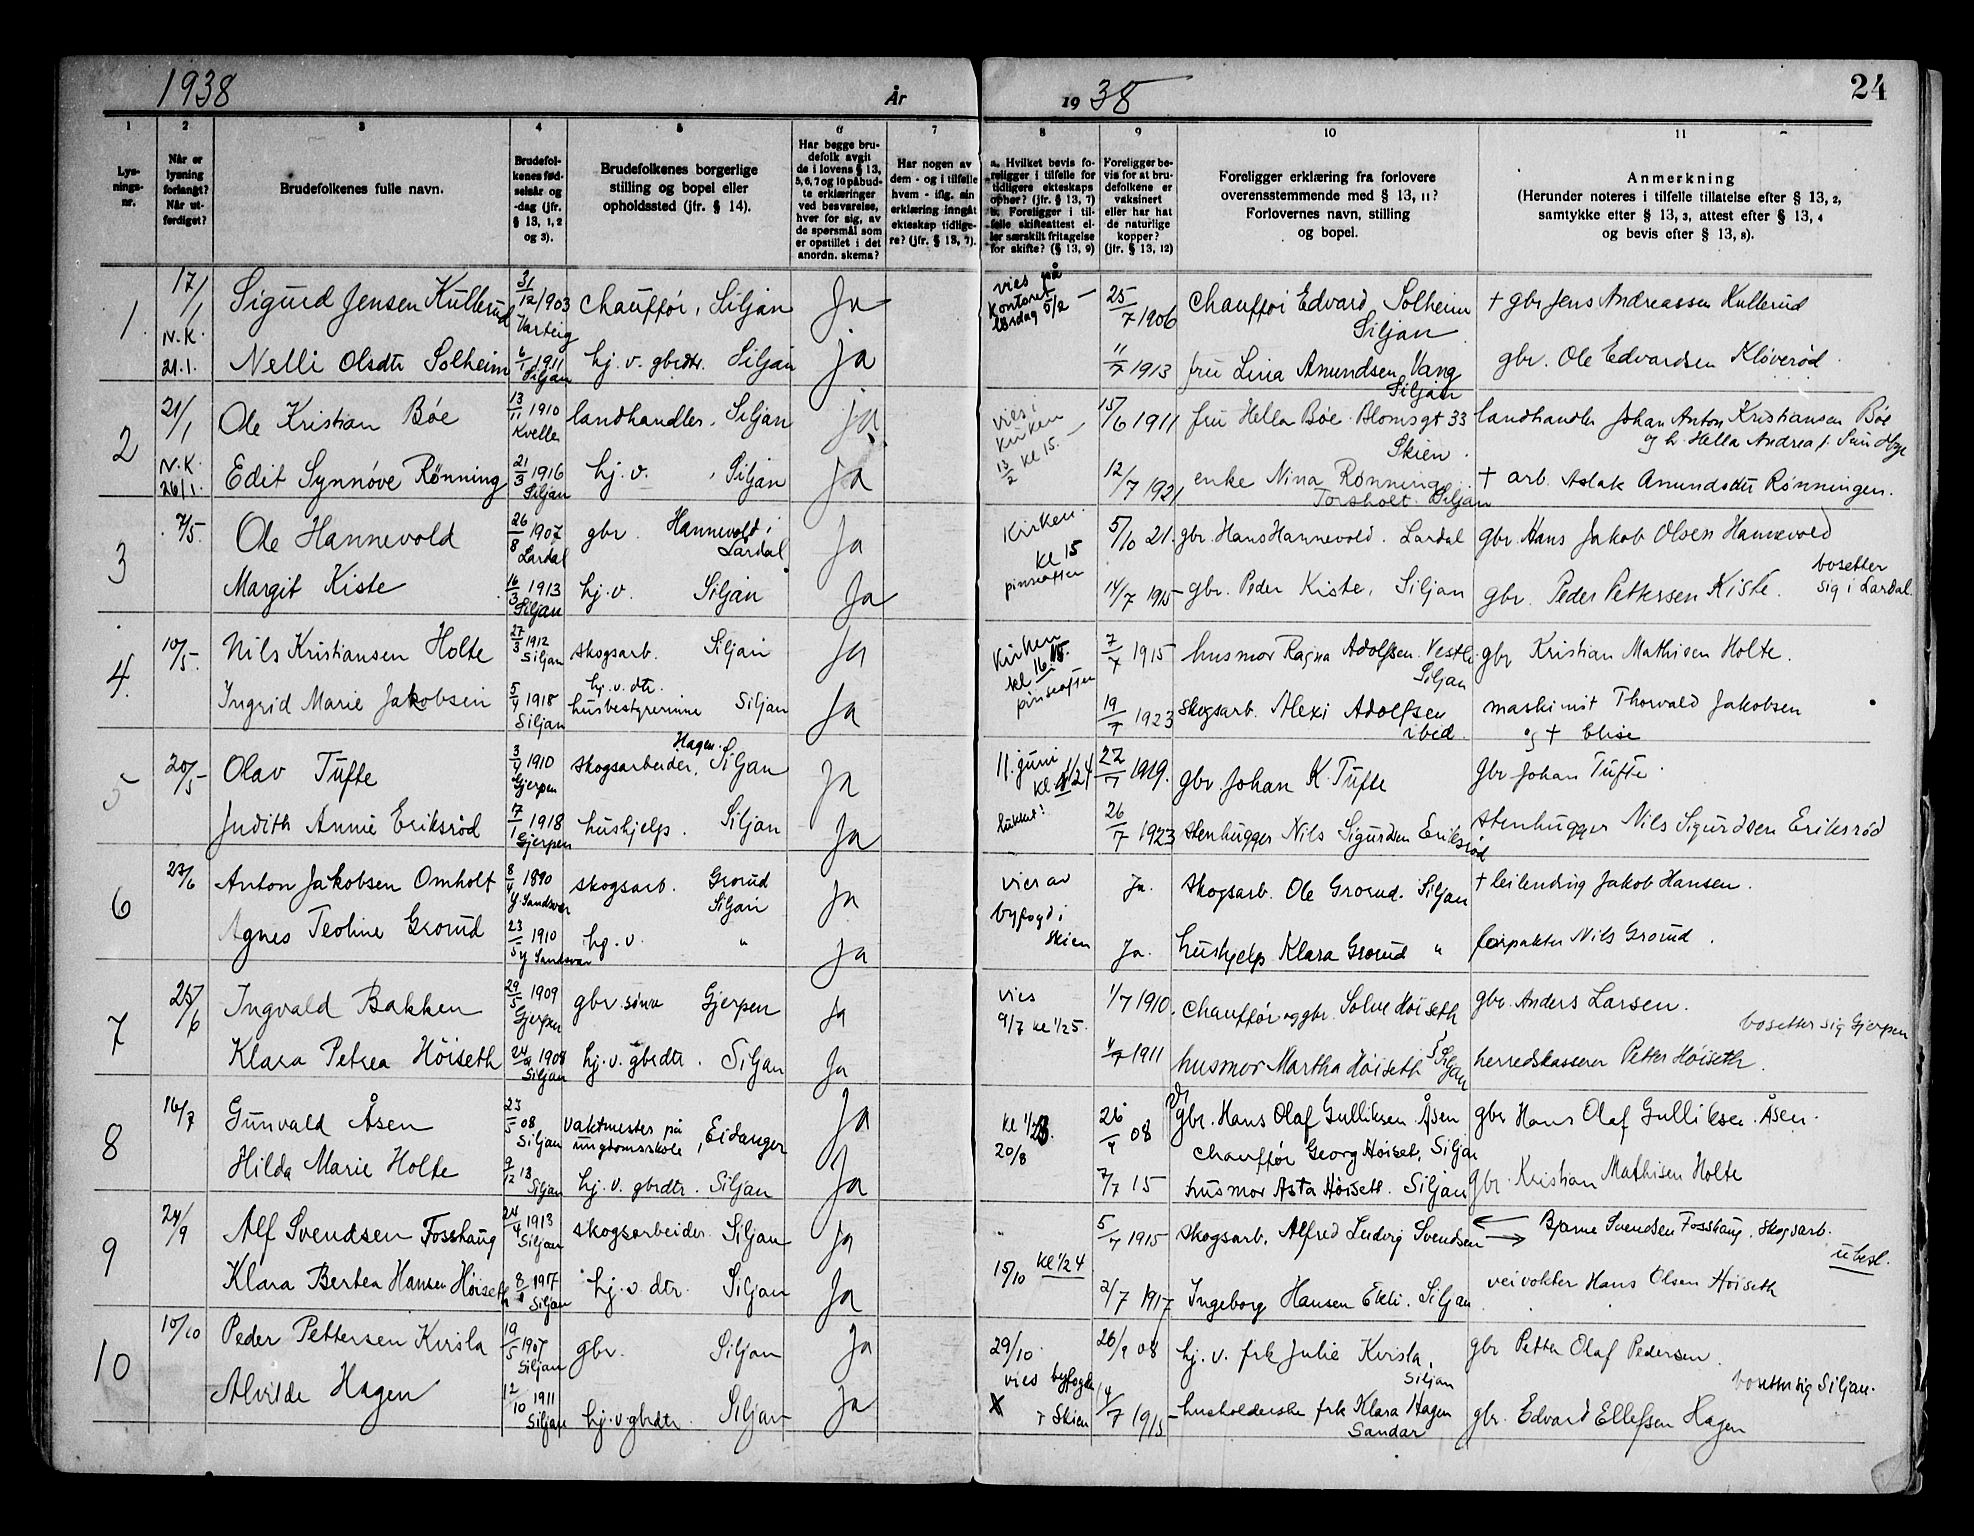 1938
År
19 38
24
1
2
3
4
5
6
7
8
9
10
11
Lysnings-nr.
Når er lysning forlangt? Når utferdiget?
Brudefolkenes fulle navn.
Brudefolkenes fødselsår og -dag (jfr. § 13, 1, 2 og 3).
Brudefolkenes borgerlige stilling og bopel eller opholdssted (jfr. § 14).
Har begge brudefolk avgit de i lovens § 13, 5, 6, 7 og 10 påbudte erklæringer ved besvarelse, hver for sig, av de spørsmål som er opstillet i det anordn. skema?
Har nogen av dem - og i tilfelle hvem - iflg. sin erklæring inngåt ekteskap tidligere? (jfr. § 13, 7).
a. Hvilket bevis foreligger i tilfelle for tidligere ekteskaps ophør? (jfr. § 13, 7) b. Foreligger i tilfelle skifteattest eller særskilt fritagelse for skifte? (§ 13, 9)
Foreligger bevis for at brudefolkene er vaksinert eller har hat de naturlige kopper? (jfr. § 13, 12)
Foreligger erklæring fra forlovere overensstemmende med § 13, 11? Forlovernes navn, stilling og bopel.
Anmerkning (Herunder noteres i tilfelle tillatelse efter § 13, 2, samtykke efter § 13, 3, attest efter § 13, 4 og bevis efter § 13, 8).
1. 17/1 Sigurd Jensen Kullerud 31/12 1903 Varteig chauffør, Siljan Ja vies på kontoret lørdag 5/2 — 25/7 1906 chauffør Edvard Solheim Siljan + gbr Jens Andreassen Kullerud
N.K. 21.1. Nelli Olsdtr Solheim 6/1 1911 Siljan hj. v. gbrdtr. Siljan ja 11/7 1913 fru Lina Amundsen Vang Siljan gbr. Ole Edvardsen Kløverød.
2 21/1 Ole Kristian Bøe 13/11 1910 Kvelle landhandler. Siljan ja vies i kirken 13/2 kl 15. — 15/6 1911 fru Hella Bøe Blomsgt 33 Skien. landhandler Johan Anton Kristiansen Bøe og h. Hella Andrea f. Sundbye
N.K. 26/1. Edit Synnøve Rønning 21/3 1916 Siljan hj. v. Siljan Ja 12/7 1921 enke Nina Rønning Torsholt. Siljan + arb. Aslak Amundsdtr Rønningen.
3 7/5. Ole Hannevold 26/8 1907 Lardal gbr. Hannevold i Lardal Ja Kirken. kl 15 pinseaften 5/10 21. gbr. Hans Hannevold. Lardal gbr. Hans Jakob Olsen Hannevold
Margit Kiste 16/3 1913 Siljan hj. v. Siljan Ja 14/7 1915 gbr. Peder Kiste, Siljan gbr. Peder Pettersen Kiste. bosetter sig i Lardal.
4. 10/5. Nils Kristiansen Holte 27/3 1912 Siljan skogsarb. Siljan Ja Kirken kl 16 pinseaften 7/7 1915 husmor Ragna Adolfsen. Vestli Siljan gbr Kristian Mathisen Holte.
Ingrid Marie Jakobsen 5/4 1918 Siljan hj. v. dtr. husbestyrerinne Siljan Ja 19/7 1923 skogsarb. Alexi Adolfsen ibed. maskinist Thorvald Jakobsen og + Elise
5 20/5 Olav Tufte 3/4 1910 Gjerpen skogsarbeider, Hagen. Siljan Ja 11. juni kl 1/2 4 22/7 1919. gbr. Johan K. Tufte gbr Johan Tufte.
Judith Annie Eriksrød 17/1 1918 Gjerpen hushjelp. Siljan Ja 26/7 1923 stenhugger Nils Sigurdsen Eriksrød stenhugger Nils Sigurdsen Eriksrød
6 23/6 Anton Jakobsen Omholt 8/4 1890 Y. Sandsvær skogsarb. Grorud Siljan Ja vies av byfogd i Skien Ja. skogsarb. Ole Grorud. Siljan + leilending Jakob Hansen.
Agnes Teoline Grorud 23/5 1910 Y Sandsvær hj. v. " Ja Ja. hushjelp Klara Grorud " forpakter Nils Grorud.
7 25/6 Ingvald Bakken 29/5 1909 Gjerpen gbr. sønn Gjerpen Ja vies 9/7 kl 1/2 5. 1/7 1910. chauffør og gbr. Solve Høiseth gbr. Anders Larsen. bosetter sig Gjerpen
Klara Petrea Höiseth 24/9 1908 Siljan hj. v. gbrdtr. Siljan Ja 4/7 1911 husmor Martha Høiseth Siljan herredskasserer Petter Høiseth.
8 16/7 Gunvald Åsen 23/5 08 Siljan vaktmester på ungdomsskole, Eidanger Ja kl 1/2 3. 20/8 26/9 08 gbr. Hans Olaf Gulliksen Åsen chauffør Georg Høiset, Siljan gbr Hans Olaf Gulliksen Åsen.
Hilda Marie Holte 9/12 13 Siljan hj. v. gbrdtr. Siljan Ja 7/7 15 husmor Asta Høiseth. Siljan gbr. Kristian Mathisen Holte
9 24/9 Alf Svendsen Fosshaug 24/4 1913 Siljan skogsarbeider. Siljan Ja 15/10 kl 1/2 4 5/7 1915 skogsarb. Alfred Ludvig Svendsen Bjarne Svendsen Fosshaug, skogsarb. ubesl.
Klara Bertea Hansen Høiseth 8/8 1917 Siljan hj. v dtr. Siljan Ja 2/7 1917 Ingeborg Hansen Ekli. Siljan veivokter Hans Olsen Høiseth
10 10/10 Peder Pettersen Kvisla 19/5 1907 Siljan gbr. Siljan Ja 29/10. vies byfogden i Skien X 26/9 08 hj. v. frk Julie Kvisla, Siljan gbr Petter Olaf Pedersen.
Alvilde Hagen 12/10 1911 Siljan hj. v gbrdtr. Siljan Ja 14/7 1915 husholderske frk Klara Hagen Sandar gbr. Edvard Ellefsen Hagen bosetter sig Siljan.